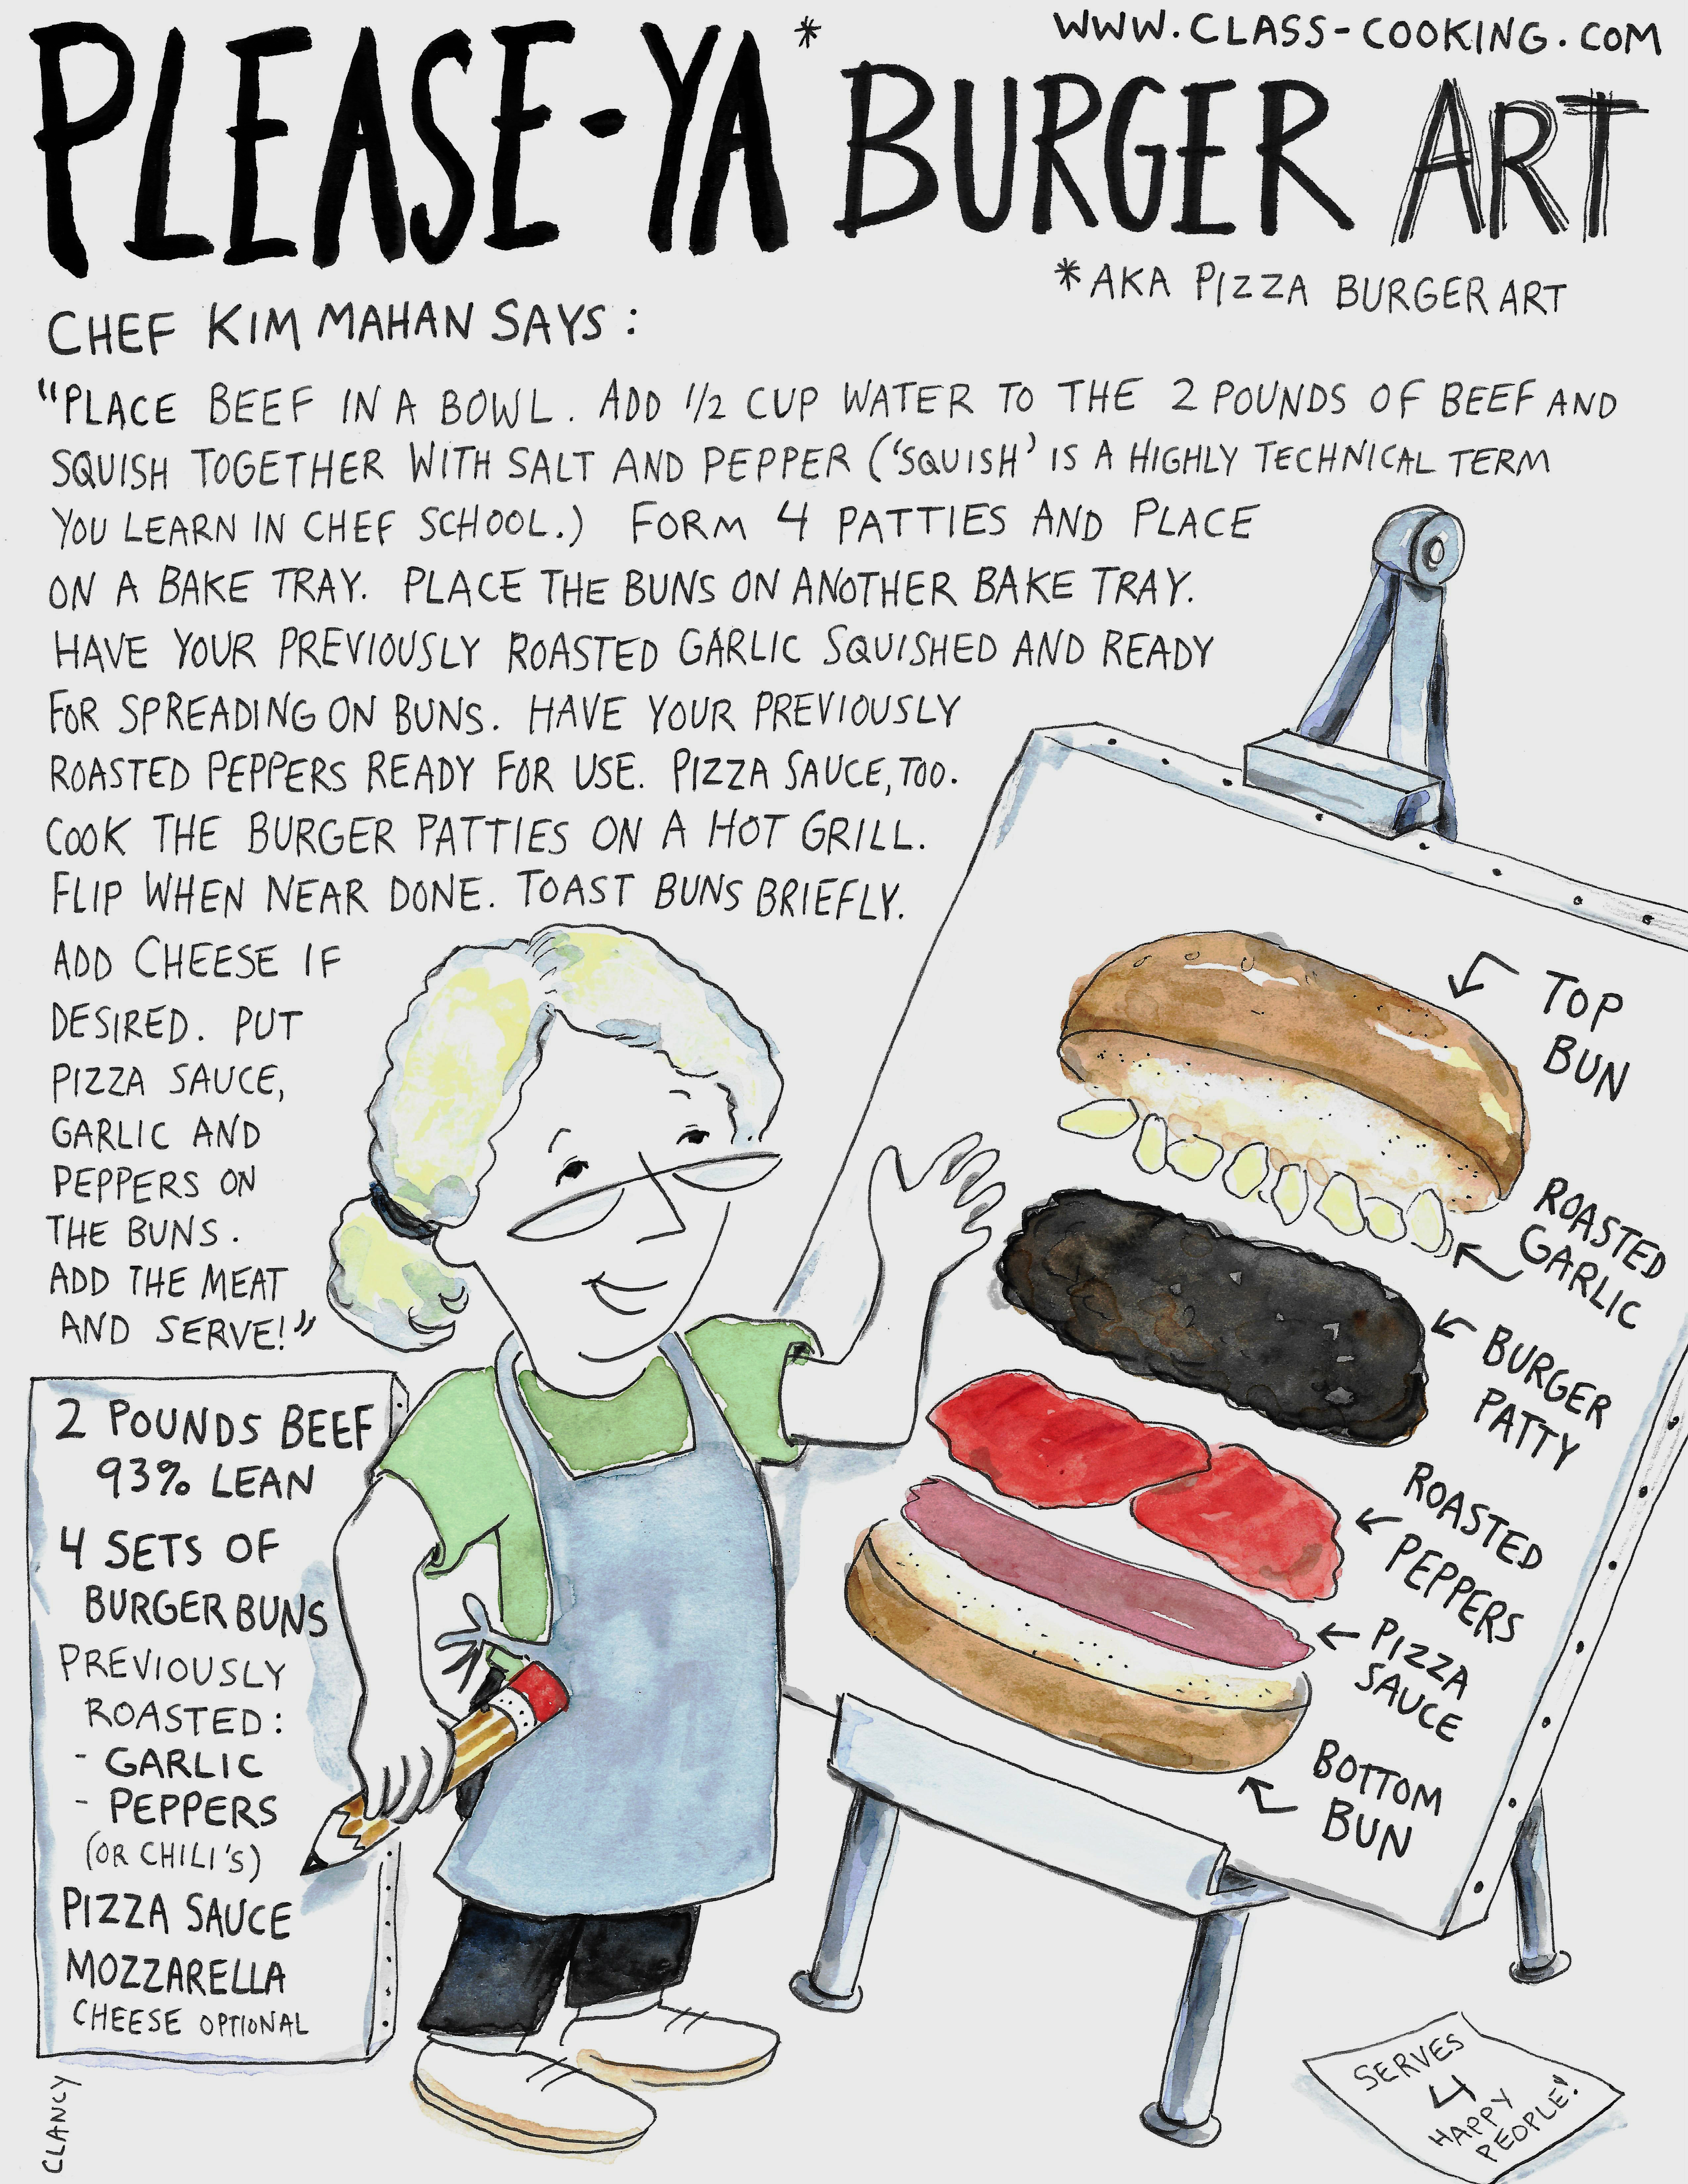 WWW.CLASS-COOKING.COM
PLEASE-YA* BURGER ART
*AKA PIZZA BURGER ART
CHEF KIM MAHAN SAYS:
"PLACE BEEF IN A BOWL. ADD 1/2 CUP WATER TO THE 2 POUNDS OF BEEF AND
SQUISH TOGETHER WITH SALT AND PEPPER ('SQUISH' IS A HIGHLY TECHNICAL TERM
YOU LEARN IN CHEF SCHOOL.) FORM 4 PATTIES AND PLACE
ON A BAKE TRAY. PLACE THE BUNS ON ANOTHER BAKE TRAY.
HAVE YOUR PREVIOUSLY ROASTED GARLIC SQUISHED AND READY
FOR SPREADING ON BUNS. HAVE YOUR PREVIOUSLY
ROASTED PEPPERS READY FOR USE. PIZZA SAUCE, TOO.
COOK THE BURGER PATTIES ON A HOT GRILL.
FLIP WHEN NEAR DONE. TOAST BUNS BRIEFLY.
ADD CHEESE IF
DESIRED. PUT
PIZZA SAUCE,
GARLIC AND
PEPPERS ON
THE BUNS.
ADD THE MEAT
AND SERVE!"
2 POUNDS BEEF
93% LEAN
4 SETS OF
BURGER BUNS
PREVIOUSLY
ROASTED:
- GARLIC
- PEPPERS
(OR CHILI'S)
PIZZA SAUCE
MOZZARELLA
CHEESE OPTIONAL
TOP
BUN
ROASTED
GARLIC
BURGER
PATTY
ROASTED
PEPPERS
PIZZA
SAUCE
BOTTOM
BUN
SERVES
4
HAPPY
PEOPLE!
CLANCY